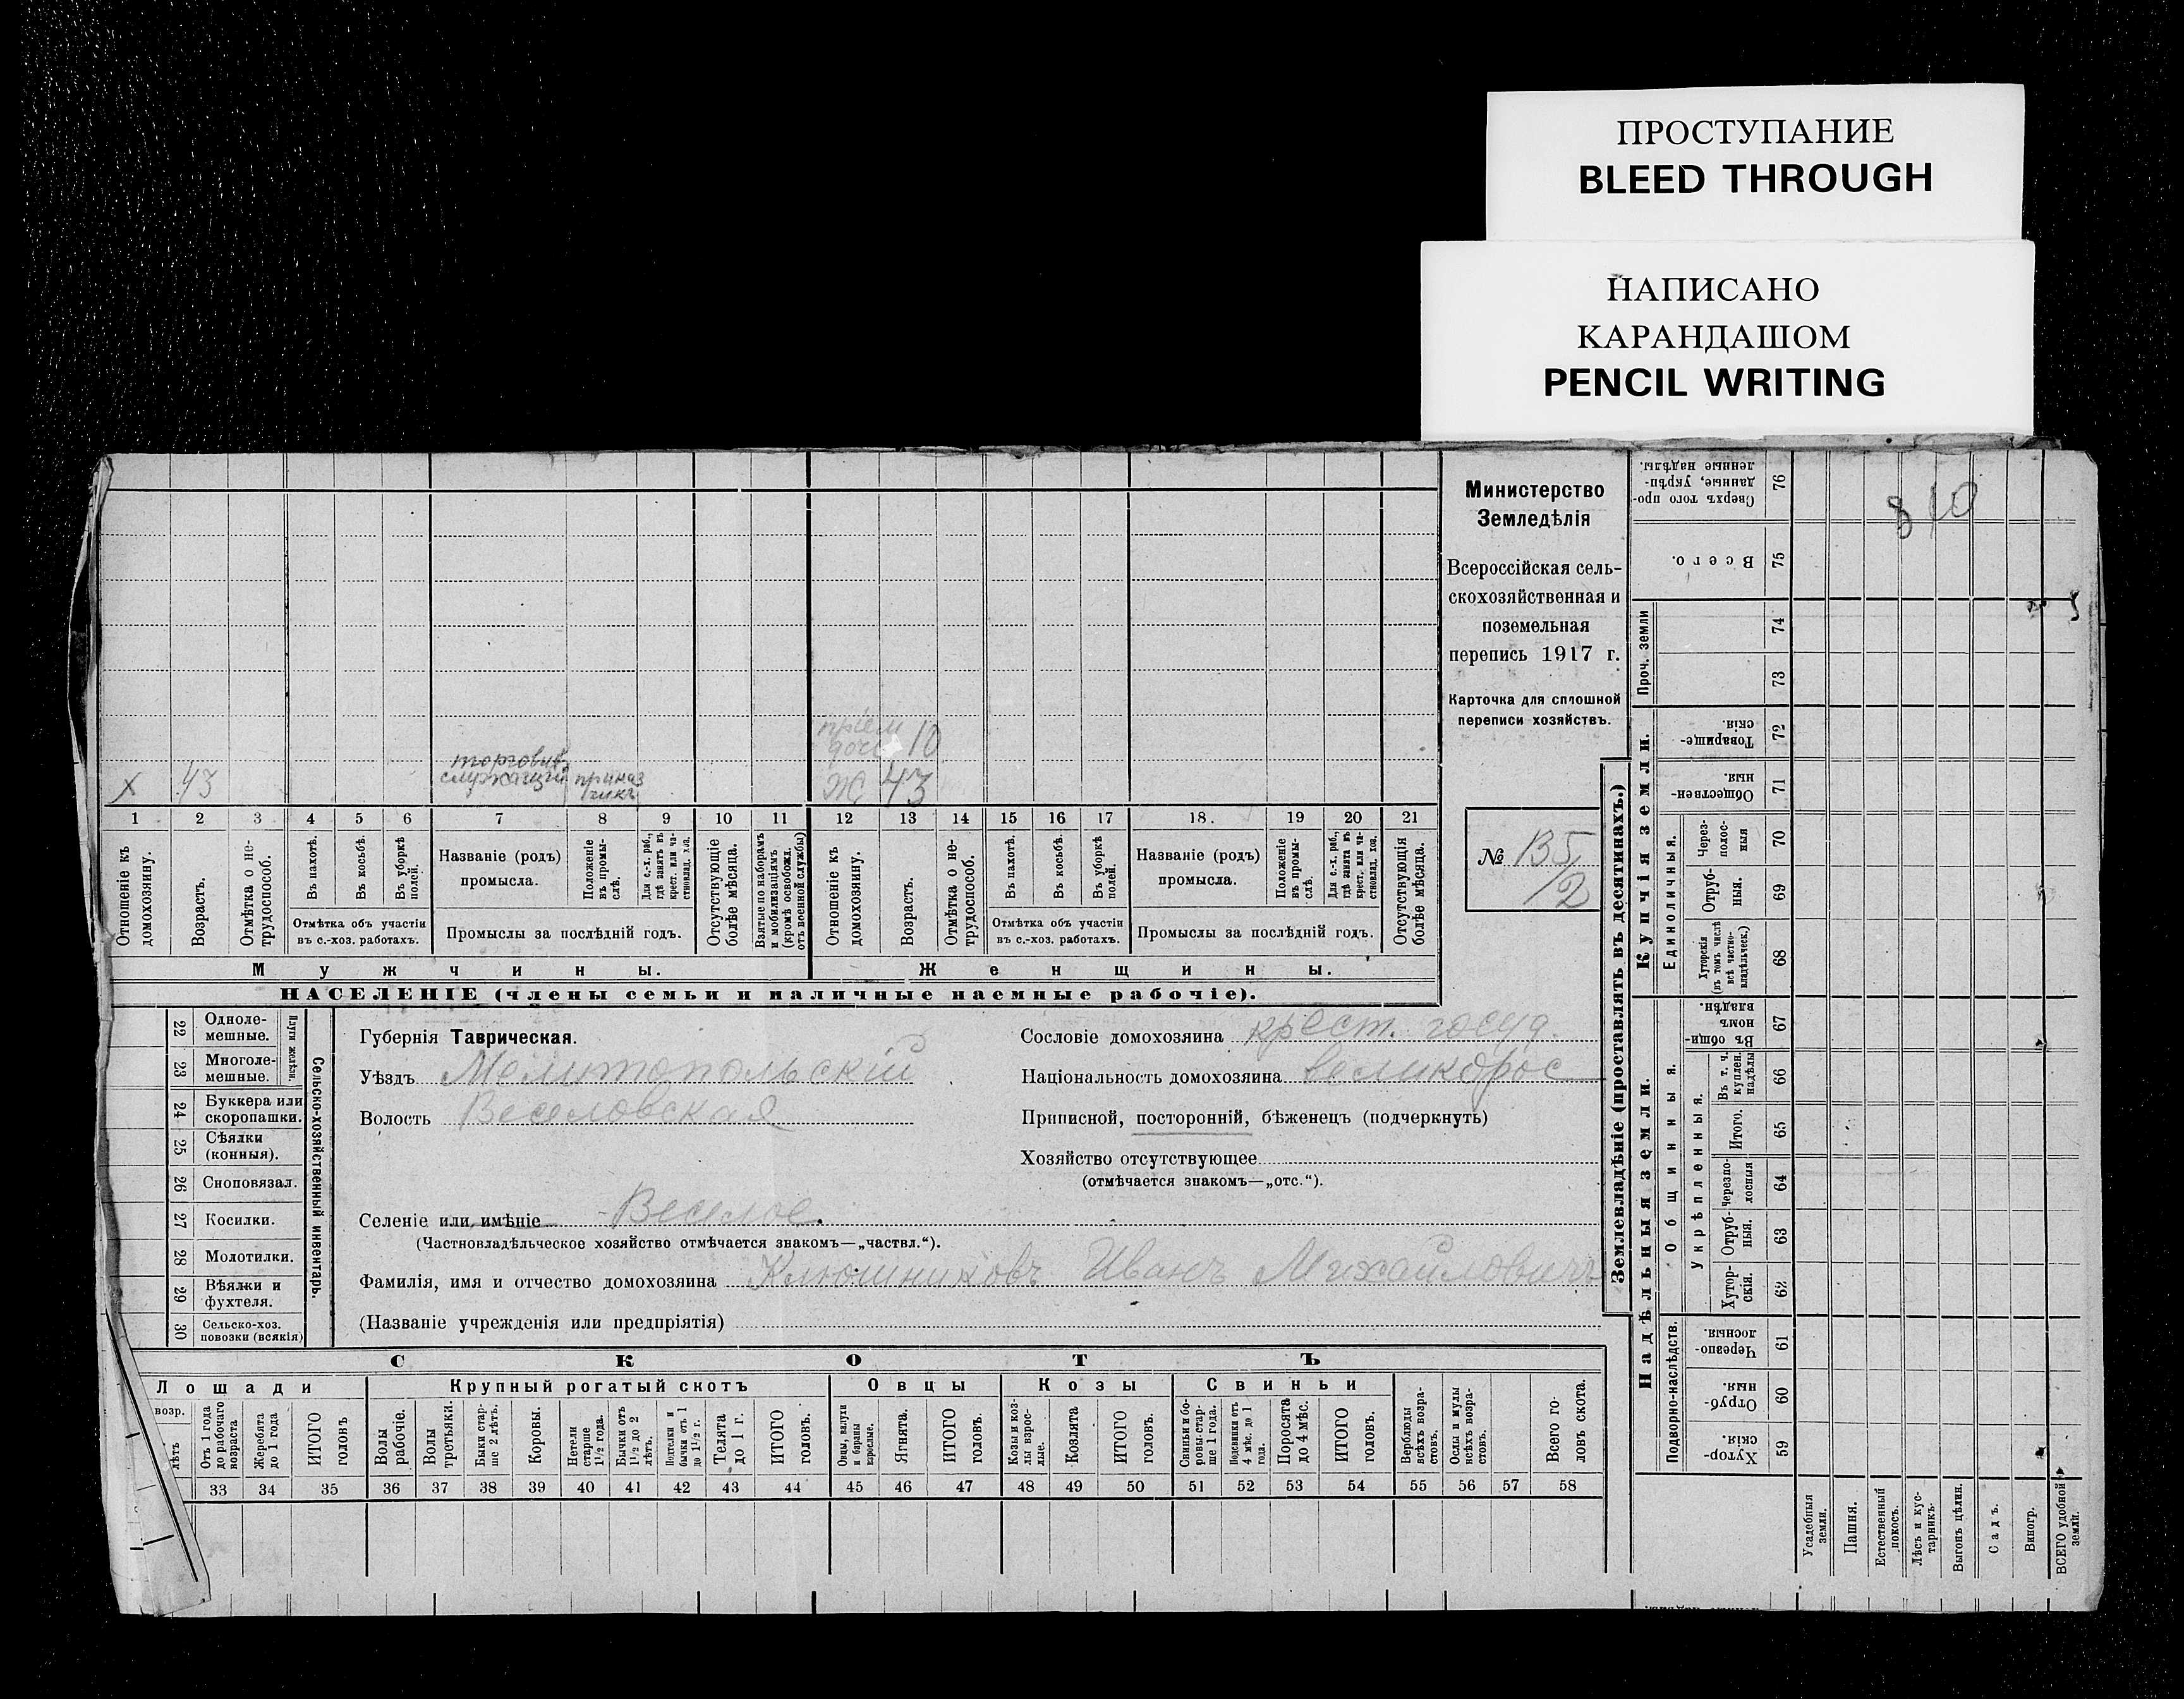 ПРОСТУПАНИЕ
BLEED THROUGH
НАПИСАНО
КАРАНДАШОМ
PENCIL WRITING
Министерство
Земледѣлія
Всероссійская сель-
скохозяйственная и
поземельная
перепись 1917 г.
Карточка для сплошной
переписи хозяйствъ.
№ 135/2
810
пріем
доч 10
торговый
служащій приказчикъ
х 43
Ж 43
1 2 3 4 5 6 7 8 9 10 11 12 13 14 15 16 17 18. 19 20 21
Отношеніе къ домохозяину.
Возрастъ.
Отмѣтка о не-трудоспособ.
Въ пахотѣ.
Въ косьбѣ.
Въ уборкѣ полей.
Отмѣтка объ участіи
въ с.-хоз. работахъ.
Названіе (родъ)
промысла.
Положеніе въ промы-слѣ.
Для с.-х. раб., гдѣ занятъ въ крест. или ча-стновлад. хоз.
Промыслы за послѣдній годъ.
Отсутствующіе болѣе мѣсяца.
Взятые по наборамъ и мобилизаціямъ (кромѣ освобожд. отъ военной службы)
Отношеніе къ домохозяину.
Возрастъ.
Отмѣтка о не-трудоспособ.
Въ пахотѣ.
Въ косьбѣ.
Въ уборкѣ полей.
Отмѣтка объ участіи
въ с.-хоз. работахъ.
Названіе (родъ)
промысла.
Положеніе въ промы-слѣ.
Для с.-х. раб., гдѣ занята въ крест. или ча-стновлад. хоз.
Промыслы за послѣдній годъ.
Отсутствующія болѣе мѣсяца.
Мужчины.
Женщины.
НАСЕЛЕНІЕ (члены семьи и наличные наемные рабочіе).
Сельско-хозяйственный инвентарь.
Плуги желѣзн.
22 Одноле-
мешные.
23 Многоле-
мешные.
24 Буккера или
скоропашки.
25 Сѣялки
(конныя).
26 Сноповязал.
27 Косилки.
28 Молотилки.
29 Вѣялки и
фухтеля.
30 Сельско-хоз.
повозки (всякія)
Губернія Таврическая.
Уѣздъ Мелитопольскій
Волость Веселовская
Селеніе или имѣніе Веселое.
(Частновладѣльческое хозяйство отмѣчается знакомъ—„частвл.“).
Фамилія, имя и отчество домохозяина Клюшниковъ Иванъ Михайловичъ
(Названіе учрежденія или предпріятія)
Сословіе домохозяина крест. госуд.
Національность домохозяина великорос
Приписной, посторонній, бѣженецъ (подчеркнуть)
Хозяйство отсутствующее
(отмѣчается знакомъ—„отс.“).
СКОТЪ
Лошади
Крупный рогатый скотъ
Овцы
Козы
Свиньи
возр.
лѣтъ
Отъ 1 года до рабочаго возраста
Жеребята до 1 года
ИТОГО головъ
Волы рабочіе.
Волы третьяки.
Быки стар-ше 2 лѣтъ.
Коровы.
Нетели старше 1½ года.
Бычки отъ 1½ до 2 лѣтъ.
Нетелки и бычки отъ 1 до 1½ г.
Телята до 1 г.
ИТОГО головъ.
Овцы, валухи и бараны взрослые.
Ягнята.
ИТОГО головъ.
Козы и коз-лы взрос-лые.
Козлята
ИТОГО головъ.
Свиньи и бо-ровы стар-ше 1 года.
Подсвинки отъ 4 мѣс. до 1 года.
Поросята до 4 мѣс.
ИТОГО головъ.
Верблюды всѣхъ возра-стовъ.
Ослы и мулы всѣхъ возра-стовъ.
Всего го-ловъ скота.
33 34 35 36 37 38 39 40 41 42 43 44 45 46 47 48 49 50 51 52 53 54 55 56 57 58
Землевладѣніе (проставлять въ десятинахъ.)
Надѣльныя земли.
Купчія земли.
Проч. земли
Сверхъ того про-данные, укрѣп-ленные надѣлы. 76
Всего. 75
74
73
Товарище-скія. 72
Обществен-ныя 71
Единоличныя.
Через-полос-ныя 70
Отруб-ныя. 69
Хуторскія (въ томъ числѣ всѣ частно-владѣльческ.) 68
Общинныя.
Въ общи-номъ владѣн. 67
Укрѣпленныя.
Въ т. ч. куплен. надѣлы 66
Итого. 65
черезпо-лосныя 64
Отруб-ныя. 63
Хутор-скія. 62
Подворно-наслѣдств.
Черезпо-лосныя. 61
Отруб-ныя 60
Хутор-скія. 59
Усадебныя земли.
Пашня.
Естественный покосъ.
Лѣсъ и кус-тарникъ.
Выгонъ цѣлин.
Садъ.
Виногр.
ВСЕГО удобной земли.